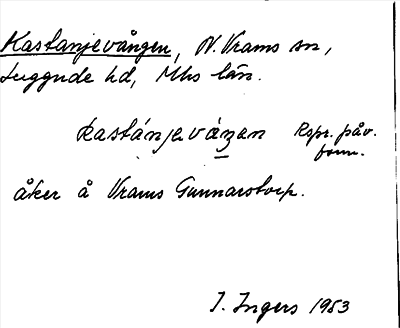 Kastanjevången, N. Vrams sn,
Luggude hd, Mhs län.
kastánjeváŋen Rspr. påv.
form.
åker å Vrams Gunnarstorp.
I. Ingers 1953